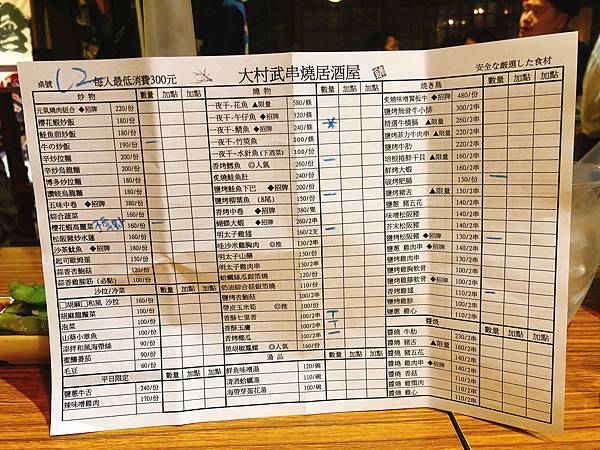 桌號 C2 每人最低消費300元
大村武串燒居酒屋
安全な厳選した食材
炒物 數量 加點 加點
元氣燒肉組合 ◆招牌 220/份
櫻花蝦炒飯 180/份
鮭魚卵炒飯 190/份
牛の炒飯 190/份
辛炒拉麵
辛炒烏龍麵
博多炒拉麵
讚岐烏龍麵
五味中卷 ◆招牌
綜合蔬菜 160/份
櫻花蝦高麗菜
松阪豬炒水蓮
沙茶魷魚 ◆招牌
起司歐姆蛋 150/份
蒜香杏鮑菇
蒜香雞腳筋 (必點) 100/份
沙拉/冷菜 數量 加點 加點
□胡麻□和風 沙拉 160/份
胡麻龍鬚菜 100/份
泡菜 100/份
山葵小章魚
涼拌和風海帶絲 90/份
蜜釀番茄 90/份
毛豆 60/份
平日限定 數量 加點 加點
鹽蔥牛舌 240/份
辣味噌雞肉 170/份
燒物 數量 加點 加點
一夜干-花魚 ▲限量 580/條
一夜干-午仔魚 ◆招牌 320/條
一夜干-鯖魚 ◆招牌 240/條
一夜干-竹筴魚 200/條
一夜干-水針魚(下酒菜) 100/條
香烤鱈魚 ◎人氣 260/份
炙燒鮭魚肚 240/份
鹽烤鮭魚下巴 ◆招牌 200/份
鹽烤柳葉魚 (8尾) 150/份
香烤中卷 ◆招牌 380/隻
蝴蝶大蝦 ◆招牌 160/2支
明太子雞翅
哇沙米雞胸肉 ◎推
明太子山藥
明太子雞肉串
蛤蠣絲瓜銀箔燒
奶油綜合菇銀箔燒
鹽烤杏鮑菇 100/2份
帶皮玉米筍 ◎推 100/份
香酥七里香
香酥玉膚
香烤櫛瓜
黑胡椒鳳螺 ◎人氣 160/份
湯品 數量 加點 加點
鮮魚味噌湯 120/碗
清酒蛤蠣湯 110/碗
海帶芽蛋花湯 100/碗
焼き鳥 數量 加點 加點
炙燒味噌翼板牛 ◆招牌 480/份
鹽烤無骨牛小排 300/2串
精選牛橫膈 ▲限量 260/2串
鹽烤菲力牛肉串 ▲限量 220/2串
鹽烤牛肋
培根捲鮮干貝 ▲限量 160/2串
鮮烤大蝦 160/2串
碳烤肥腸 150/份
鹽烤豬舌 ▲限量 150/2串
鹽蔥 豬五花 140/2串
味噌松阪豬 140/2串
芥末松阪豬 140/2串
鹽烤松阪豬 ◆招牌 130/2串
鹽蔥 雞肉串 ◆招牌
鹽烤雞肉串
鹽烤雞胸軟骨
鹽烤雞膝軟骨 ◆招牌 100/2串
香烤雞翅 110/2串
鹽烤雞胗
鹽蔥 雞心
醬燒 數量 加點 加點
醬燒 牛肋 230/2串
醬燒 豬舌 ▲限量 150/2串
醬燒 豬五花 140/2串
醬燒 雞肉串 ◆招牌
醬燒 香菇
醬燒 雞頸肉 110/2串
醬燒 雞心 110/2串